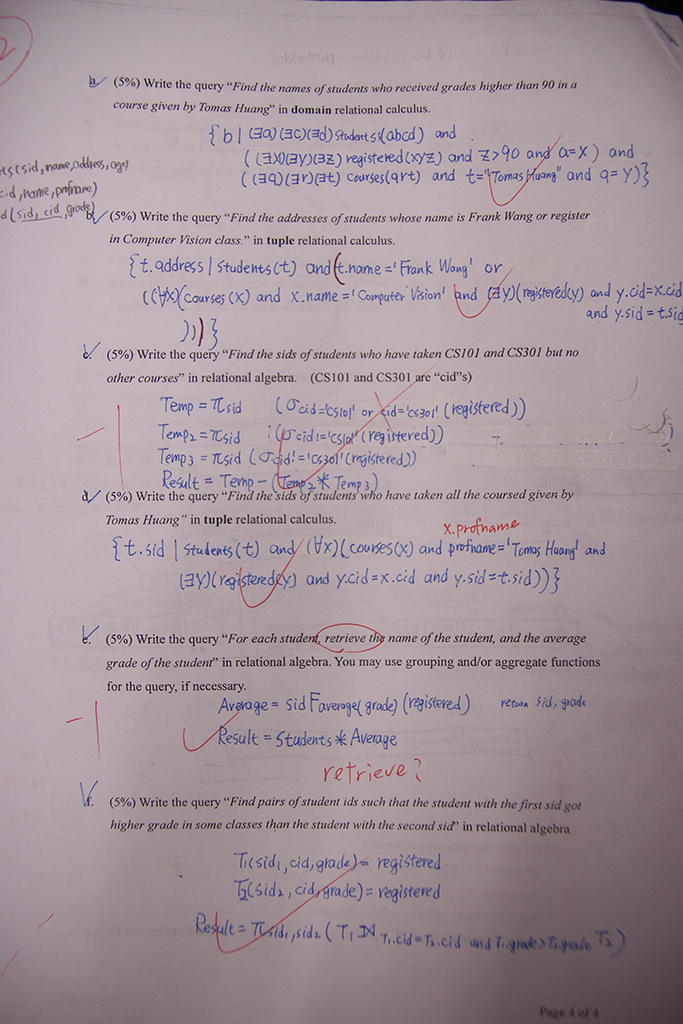 2
a. (5%) Write the query “Find the names of students who received grades higher than 90 in a
course given by Tomas Huang” in domain relational calculus.
{ b | (∃a)(∃c)(∃d) students(abcd) and
( (∃x)(∃y)(∃z) registered(xyz) and z>90 and a=x ) and
( (∃q)(∃r)(∃t) courses(qrt) and t="Tomas Huang" and q=y)}
ts(sid, name, address, age)
cid, name, profname)
d(sid, cid, grade)
b. (5%) Write the query “Find the addresses of students whose name is Frank Wang or register
in Computer Vision class.” in tuple relational calculus.
{t.address | students(t) and (t.name = 'Frank Wang' or
((∀x)(courses(x) and x.name = 'Computer Vision' and (∃y)(registered(y) and y.cid=x.cid
and y.sid = t.sid
)))}
c. (5%) Write the query “Find the sids of students who have taken CS101 and CS301 but no
other courses” in relational algebra. (CS101 and CS301 are “cid”s)
Temp = πsid (σcid='CS101' or cid='CS301' (registered))
Temp2 = πsid (σcid!='CS101' (registered))
Temp3 = πsid (σcid!='CS301' (registered))
Result = Temp - (Temp2 * Temp3)
-1
d. (5%) Write the query “Find the sids of students who have taken all the coursed given by
Tomas Huang” in tuple relational calculus.
x.profname
{t.sid | students(t) and (∀x)(courses(x) and profname='Tomas Huang' and
(∃y)(registered(y) and y.cid=x.cid and y.sid=t.sid))}
e. (5%) Write the query “For each student, retrieve the name of the student, and the average
grade of the student” in relational algebra. You may use grouping and/or aggregate functions
for the query, if necessary.
Average = sid Faverage(grade) (registered) return sid, grade
-1
Result = Students * Average
retrieve?
f. (5%) Write the query “Find pairs of student ids such that the student with the first sid got
higher grade in some classes than the student with the second sid” in relational algebra
T1(sid1, cid, grade) = registered
T2(sid2, cid, grade) = registered
Result = πsid1, sid2 ( T1 ⋈ T1.cid=T2.cid and T1.grade>T2.grade T2 )
Page 4 of 4